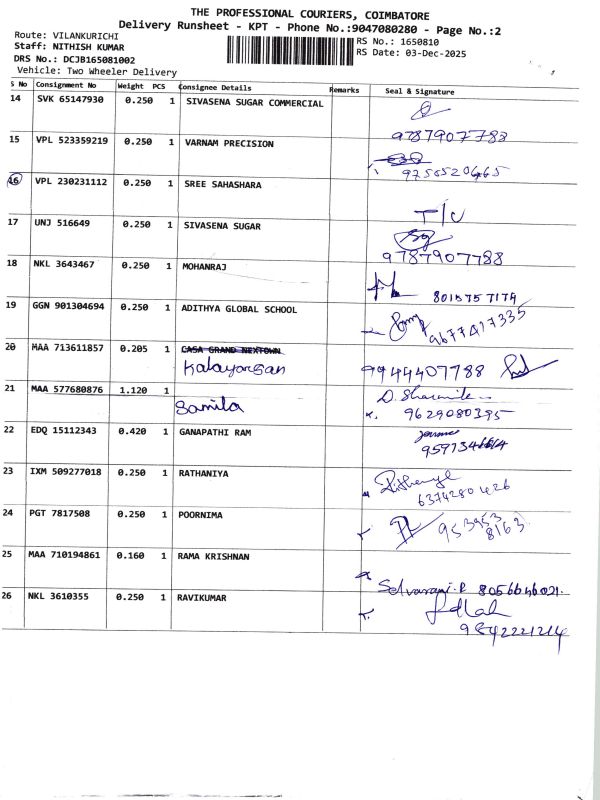 THE PROFESSIONAL COURIERS, COIMBATORE
Delivery Runsheet - KPT - Phone No.:9047080280 - Page No.:2
Route: VILANKURICHI
RS No.: 1650810
Staff: NITHISH KUMAR
RS Date: 03-Dec-2025
DRS No.: DCJB165081002
Vehicle: Two Wheeler Delivery
S No Consignment No Weight PCS Consignee Details Remarks Seal & Signature
14 SVK 65147930 0.250 1 SIVASENA SUGAR COMMERCIAL
9787907783
15 VPL 523359219 0.250 1 VARNAM PRECISION
9750520465
16 VPL 230231112 0.250 1 SREE SAHASHARA
T/C
17 UNJ 516649 0.250 1 SIVASENA SUGAR
9787907788
18 NKL 3643467 0.250 1 MOHANRAJ
8015757174
19 GGN 901304694 0.250 1 ADITHYA GLOBAL SCHOOL
9677417335
20 MAA 713611857 0.205 1 CASA GRAND NEXTOWN
9944407788
21 MAA 577680876 1.120 1 Samila
9629080395
22 EDQ 15112343 0.420 1 GANAPATHI RAM
23 IXM 509277018 0.250 1 RATHANIYA
6374280426
24 PGT 7817508 0.250 1 POORNIMA
953953
8163
25 MAA 710194861 0.160 1 RAMA KRISHNAN
Selvarani.P 8056646021.
26 NKL 3610355 0.250 1 RAVIKUMAR
9842221214